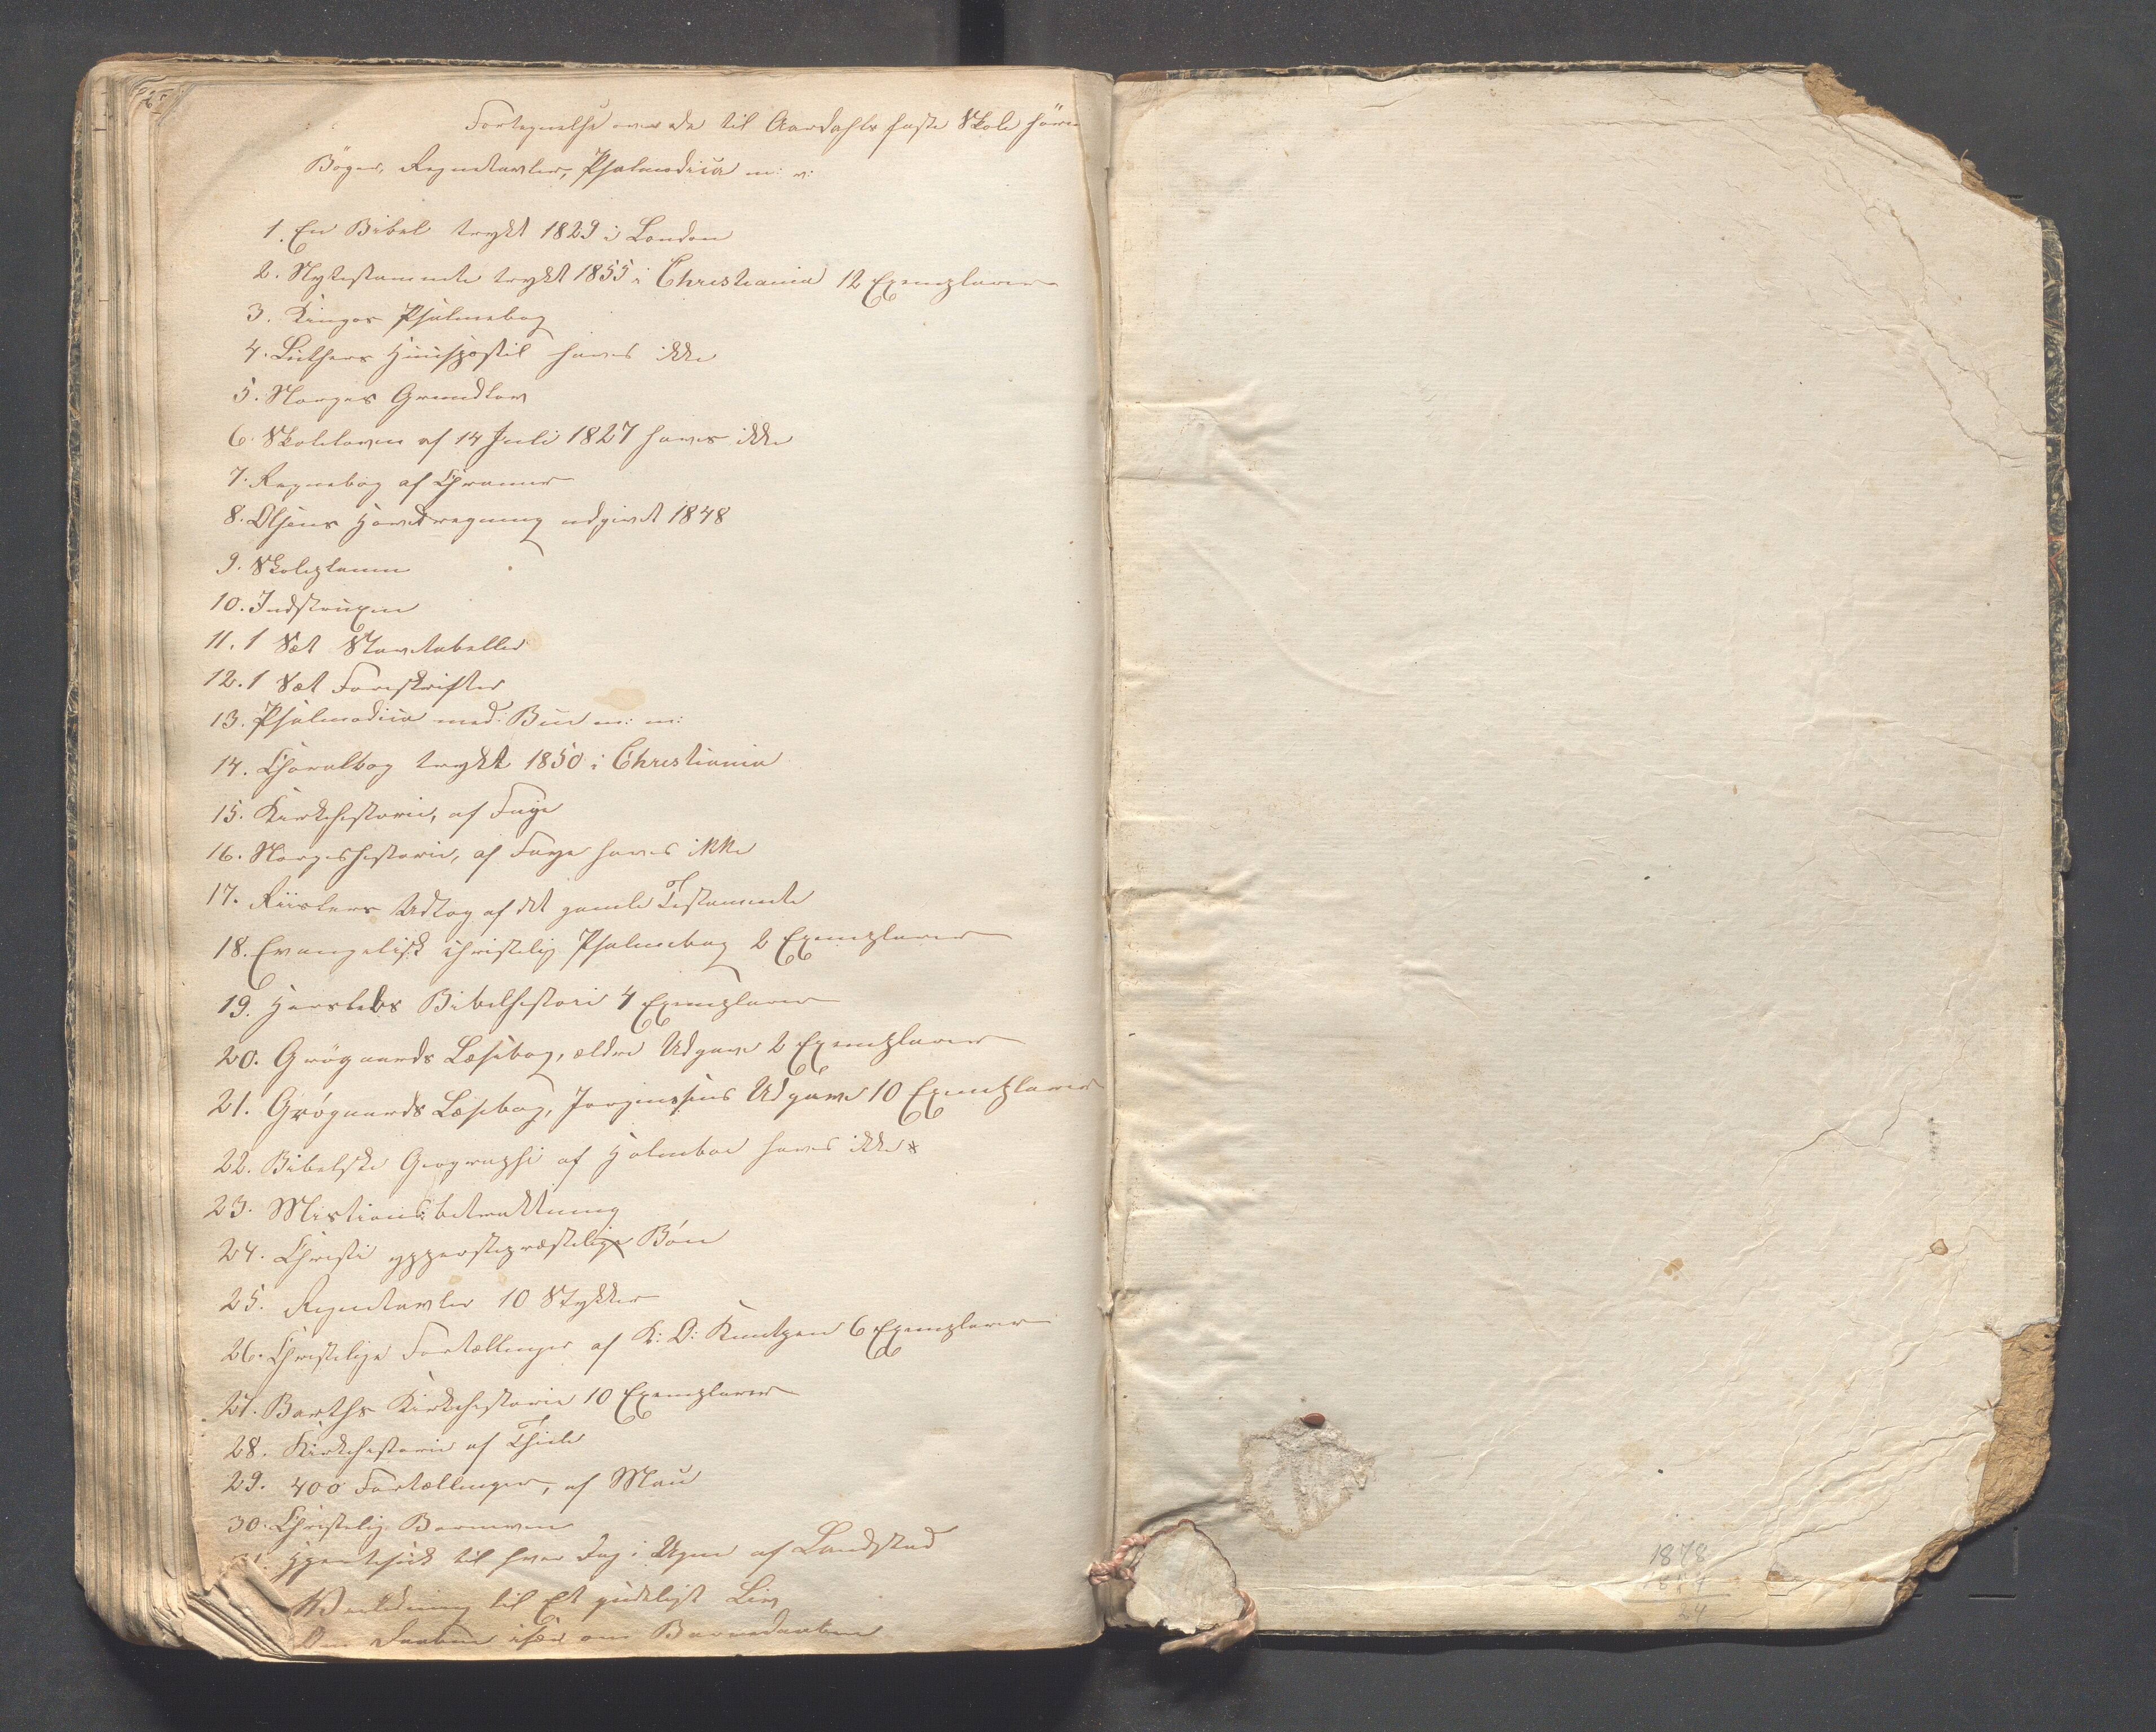 Fortegnelse over de til Aardahls faste Skole hörende
Böger, Regnetavler, Psalmodica m: v:
1. En Bibel trykt 1829 i London
2. Nytestamente trykt 1855 i Christiania 12 Exemplarer
3. Kingos Psalmebog
4. Luthers Huuspostil haves ikke
5. Norges Grundlov
6. Skoleloven af 14 Juli 1827 haves ikke
7. Regnebog af Chramer
8. Olsens Hovedregning udgivet 1848
9. Skoleplanen
10. Instruxen
11. 1 Sæt Stavetabeller
12. 1 Sæt Foreskrifter
13. Psalmodica med Bue m: m:
14. Choralbog trykt 1850 i Christiania
15. Kirkehistorie, af Faye
16. Norgeshistorie, af Faye haves ikke
17. Riislers Udtog af det gamle Testamente
18. Evangelisk christelig Psalmebog 2 Exemplarer
19. Herslebs Bibelhistorie 4 Exemplarer
20. Grögaards Læsebog, ældre Udgave 2 Exemplarer
21. Grögaards Læsebog, Jorginsens Udgave 10 Exemplarer
22. Bibelske Geographi af Holmboe haves ikke
23. Missionsbetraktning
24. Christi ypperstepræstelige Bön
25. Regnetavler 10 Stykker
26. Christelige Fortællinger af K: O: Knutzen 6 Exemplarer
27. Barths Kirkehistorie 10 Exemplarer
28. Kirkehistorie af Thiele
29. 400 Fortællinger, af Mau
30. Christelig Børneven
31. Hjertesuk til hver Dag i Ugen af Landstad
Veiledning til Et gudeligt Liv
Om Daaben især om Barnedaaben
1878
24